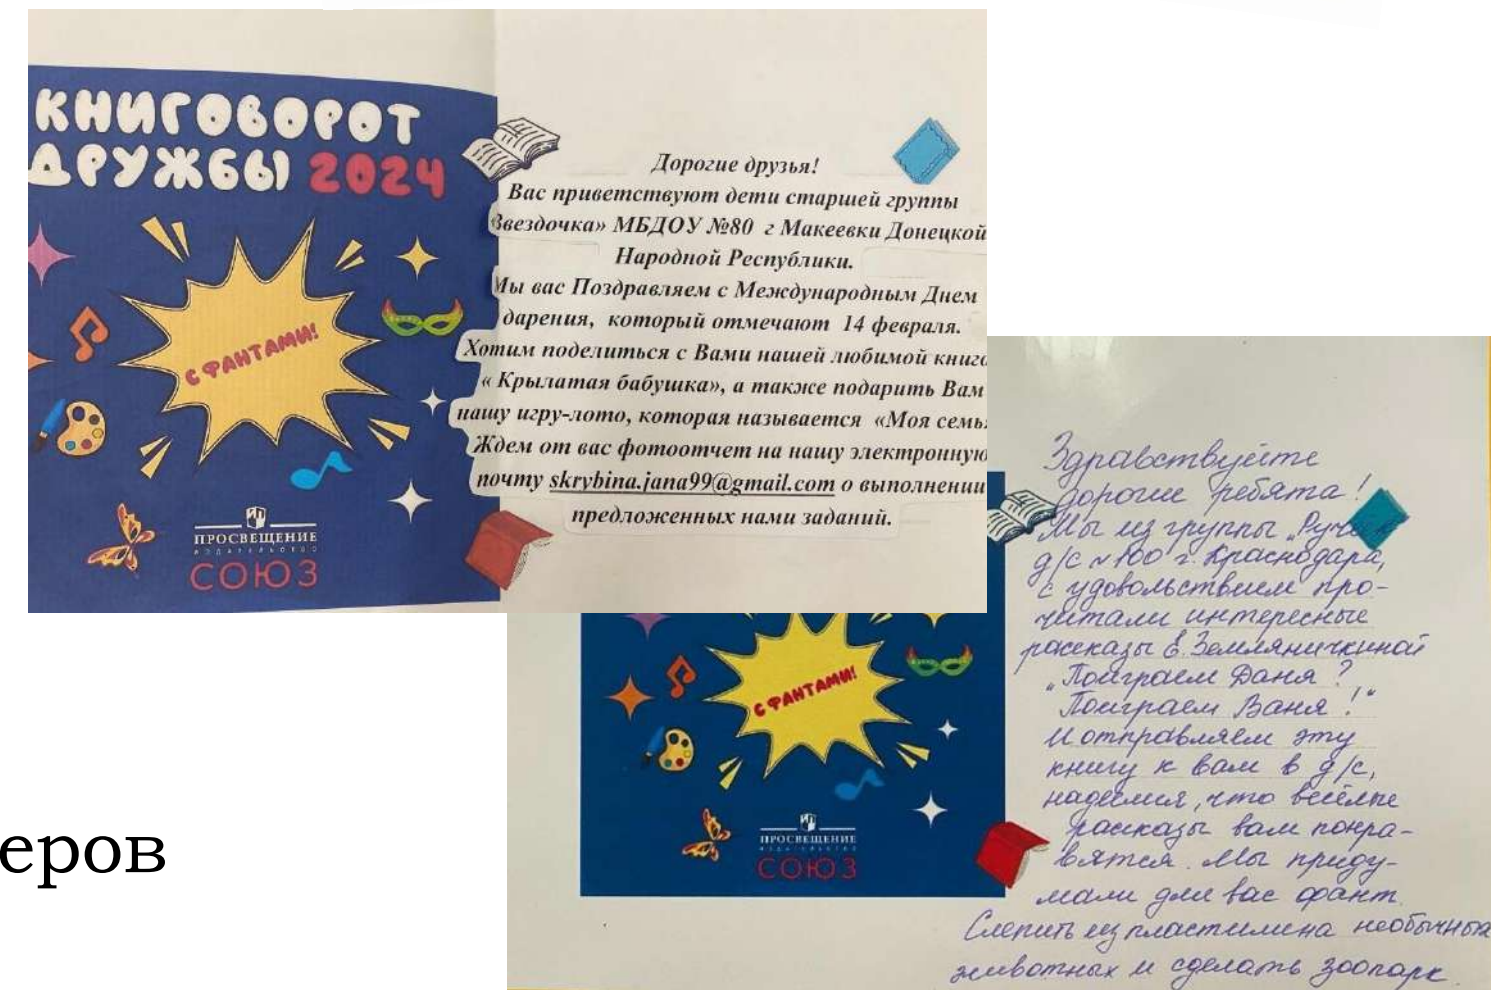 КНИГОВОРОТ
ДРУЖБЫ 2024
С ФАНТАМИ!
ПРОСВЕЩЕНИЕ
ИЗДАТЕЛЬСТВО
СОЮЗ
Дорогие друзья!
Вас приветствуют дети старшей группы
Звездочка» МБДОУ №80 г Макеевки Донецкой
Народной Республики.
Мы вас Поздравляем с Международным Днем
дарения, который отмечают 14 февраля.
Хотим поделиться с Вами нашей любимой книго
« Крылатая бабушка», а также подарить Вам
нашу игру-лото, которая называется «Моя семь
Ждем от вас фотоотчет на нашу электронную
почту skrybina.jana99@gmail.com о выполнении
предложенных нами заданий.
С ФАНТАМИ!
ПРОСВЕЩЕНИЕ
ИЗДАТЕЛЬСТВО
СОЮЗ
Здравствуйте
дорогие ребята!
Мы из группы „Ручеек
д/с №100 г. Краснодара,
с удовольствием про-
читали интересные
рассказы Е. Земляничкиной
„Поиграем Даня?
Поиграем Ваня!“
И отправляем эту
книгу к вам в д/с,
надеемся, что весёлые
рассказы вам понра-
вятся. Мы приду-
мали для вас фант.
Слепить из пластилина необычных
животных и сделать зоопарк
еров